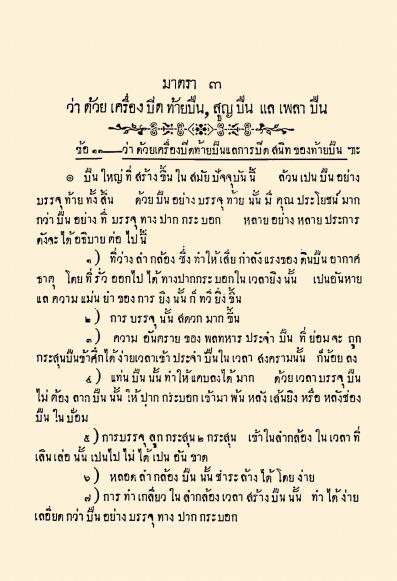 มาตรา ๓
ว่า ด้วย เครื่อง บีด ท้ายปืน, สูญ ปืน แล เพลา ปืน
ข้อ ๑๑——ว่า ด้วยเครื่องบีดท้ายปืนแลการบีด สนิท ของท้ายปืน
๏ ปืน ใหญ่ ที่ สร้าง ขึ้น ใน สมัย ปัจจุบัน นี้ ล้วน เปน ปืน อย่าง
บรรจุ ท้าย ทั้ง สิ้น ด้วย ปืน อย่าง บรรจุ ท้าย นั้น มี คุณ ประโยชน์ มาก
กว่า ปืน อย่าง ที่ บรรจุ ทาง ปาก กระบอก หลาย อย่าง หลาย ประการ
ดังจะ ได้ อธิบาย ต่อ ไป นี้
๑) ที่ว่าง ลำ กล้อง ซึ่ง ทำให้ เสีย กำลัง แรงของ ดินปืน อากาศ
ธาตุ โดย ที่ รั่ว ออกไป ได้ ทางปากกระบอกใน เวลายิง นั้น เปนอันหาย
แล ความ แม่น ยำ ของ การ ยิง นั้น ก็ ทวี ยิ่ง ขึ้น
๒) การ บรรจุ นั้น สดวก มาก ขึ้น
๓) ความ อันตราย ของ พลทหาร ประจำ ปืน ที่ ย่อมจะ ถูก
กระสุนปืนข้าศึกได้ ง่ายเวลาเข้า ประจำ ปืนใน เวลา สงครามนั้น ก็น้อย ลง
๔) แท่น ปืน นั้น ทำให้ แคบลงได้ มาก ด้วย เวลา บรรจุ ปืน
ไม่ ต้อง ลาก ปืน นั้น ให้ ปาก กระบอก เข้ามา พ้น หลัง เส้นยิง หรือ หลังช่อง
ปืน ใน ป้อม
๕) การบรรจุ ลูก กระสุน ๒ กระสุน เข้าในลำกล้อง ใน เวลา ที่
เลินเล่อ นั้น เปนไป ไม่ ได้ เปน อัน ขาด
๖) หลอด ลำ กล้อง ปืน นั้น ชำระ ล้าง ได้ โดย ง่าย
๗) การ ทำ เกลียว ใน ลำกล้อง เวลา สร้าง ปืน นั้น ทำ ได้ ง่าย
เลอียด กว่า ปืน อย่าง บรรจุ ทาง ปาก กระบอก